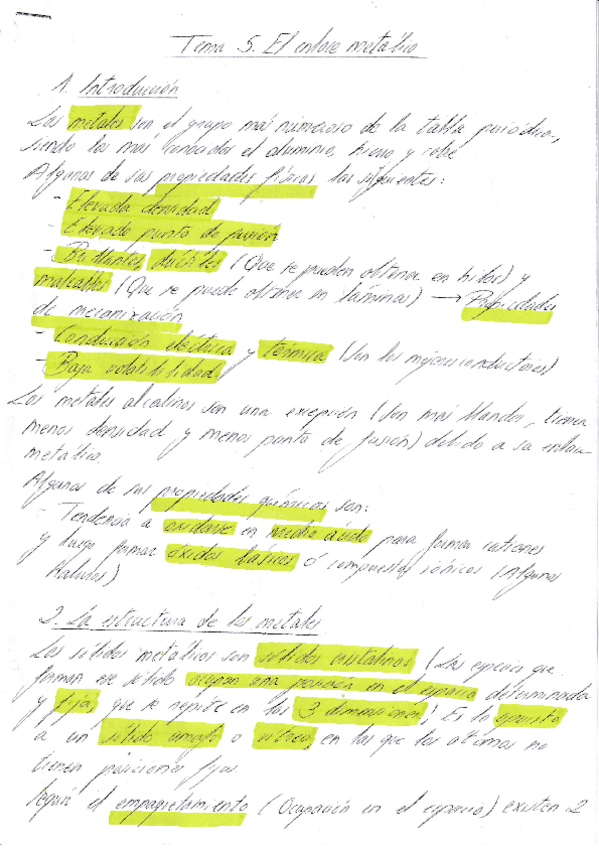 Tema 5. El enlace metálico
1. Introducción
Los metales son el grupo más numeroso de la tabla periódica,
siendo los mas conocidos el aluminio, hierro y cobre
Algunas de sus propiedades físicas las siguientes:
- Elevada densidad
- Elevado punto de fusión
- Brillantes, dúctiles (Que se pueden obtener en hilos) y
maleables (Que se puede obtener en láminas) → Propiedades
de mecanización
- Conducción eléctrica y térmica (Son los mejores conductores)
- Baja volatilidad
Los metales alcalinos son una excepción (Son más blandos, tienen
menos densidad y menos punto de fusión) debido a su enlace
metálico
Algunas de sus propiedades químicas son:
- Tendencia a oxidarse en medio ácido para formar cationes
y luego formar óxidos básicos ó compuestos iónicos (Algunos
haluros)
2. La estructura de los metales
Los sólidos metálicos son sólidos cristalinos (Las especies que
forman ese sólido ocupan una posición en el espacio determinada
y fija, que se repite en las 3 dimensiones! Es lo opuesto
a un sólido amorfo o vítreo, en los que los átomos no
tienen posiciones fijas
Según el empaquetamiento (Ocupación en el espacio) existen 2